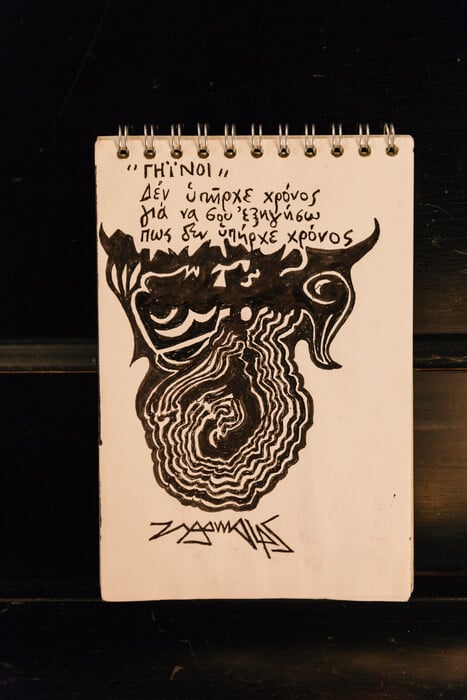 "ΓΗΪΝΟΙ"
Δέν ὑπῆρχε χρόνος
γιά να σου ἐξηγήσω
πως δέν ὑπήρχε χρόνος